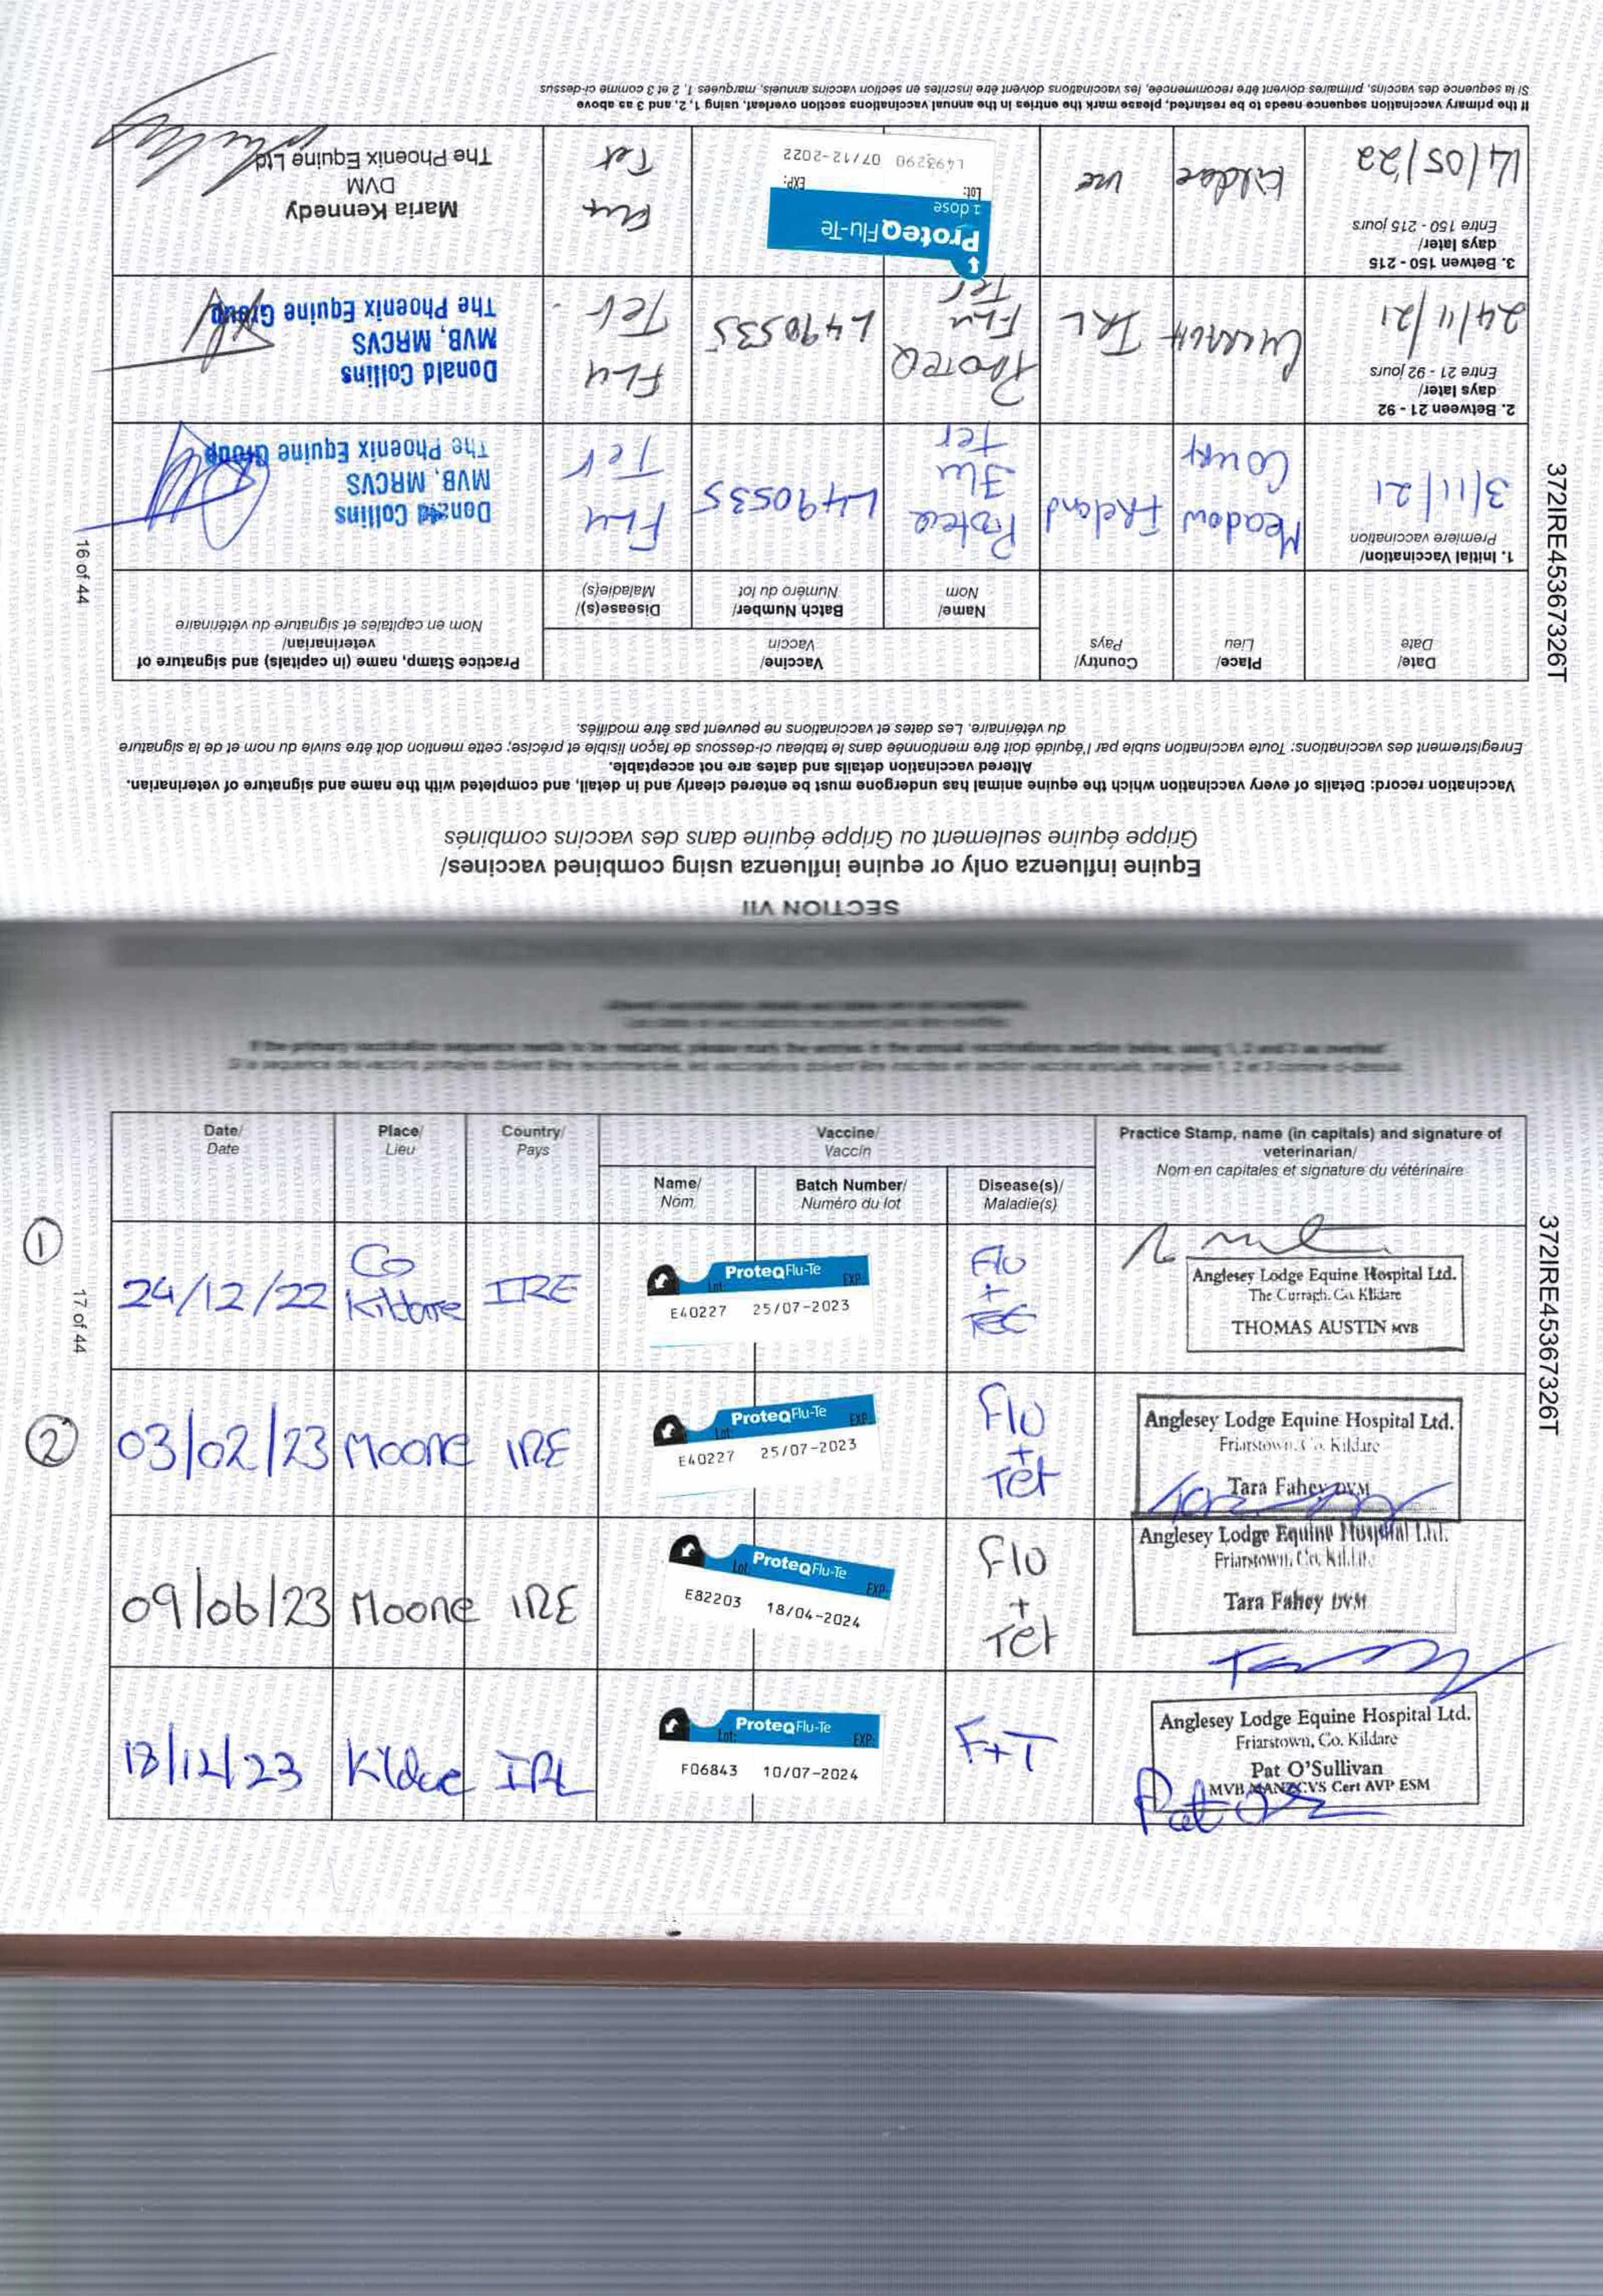 SECTION VII
Equine influenza only or equine influenza using combined vaccines/
Grippe équine seulement ou Grippe équine dans des vaccins combinés
Vaccination record: Details of every vaccination which the equine animal has undergone must be entered clearly and in detail, and completed with the name and signature of veterinarian.
Altered vaccination details and dates are not acceptable.
Enregistrement des vaccinations: Toute vaccination subie par l'équidé doit être mentionnée dans le tableau ci-dessous de façon lisible et précise; cette mention doit être suivie du nom et de la signature
du vétérinaire. Les dates et vaccinations ne peuvent pas être modifiés.
Date/
Date
Place/
Lieu
Country/
Pays
Vaccine/
Vaccin
Name/
Nom
Batch Number/
Numéro du lot
Disease(s)/
Maladie(s)
Practice Stamp, name (in capitals) and signature of
veterinarian/
Nom en capitales et signature du vétérinaire
1. Initial Vaccination/
Première vaccination
3/11/21
Meadow
Court
Ireland
Proteq
Flu
Tet
L490535
Flu
Tet
Donald Collins
MVB, MRCVS
The Phoenix Equine Group
2. Between 21 - 92
days later/
Entre 21 - 92 jours
24/11/21
Curragh
IRL
Proteq
Flu
Tet
L490535
Flu
Tet
Donald Collins
MVB, MRCVS
The Phoenix Equine Group
3. Betwen 150 - 215
days later/
Entre 150 - 215 jours
14/05/22
Kildare
ProteqFlu-Te
1 dose
Lot:
EXP:
L493290 07/12-2022
Flu
Tet
Maria Kennedy
DVM
The Phoenix Equine Ltd
If the primary vaccination sequence needs to be restarted, please mark the entries in the annual vaccinations section overleaf, using 1, 2, and 3 as above
Si la sequence des vaccins, primaires doivent être recommencée, les vaccinations doivent être inscrites en section vaccins annuels, marquées 1, 2 et 3 comme ci-dessus
16 of 44
372IRE45367326T
If the primary vaccination sequence needs to be restarted, please mark the entries in the annual vaccinations section below, using 1, 2 and 3 as overleaf
Date/
Date
Place/
Lieu
Country/
Pays
Vaccine/
Vaccin
Name/
Nom
Batch Number/
Numéro du lot
Disease(s)/
Maladie(s)
Practice Stamp, name (in capitals) and signature of
veterinarian/
Nom en capitales et signature du vétérinaire
1
24/12/22
Co
Kildare
IRE
ProteqFlu-Te
Lot:
EXP:
E40227 25/07-2023
Flu
+
Tet
Anglesey Lodge Equine Hospital Ltd.
The Curragh, Co. Kildare
THOMAS AUSTIN MVB
2
03/02/23
Moone
IRE
ProteqFlu-Te
Lot:
EXP:
E40227 25/07-2023
Flu
+
Tet
Anglesey Lodge Equine Hospital Ltd.
Friarstown, Co. Kildare
Tara Fahey DVM
09/06/23
Moone
IRE
ProteqFlu-Te
Lot:
EXP:
E82203 18/04-2024
Flu
+
Tet
Anglesey Lodge Equine Hospital Ltd.
Friarstown, Co. Kildare
Tara Fahey DVM
18/12/23
Kildare
IRL
ProteqFlu-Te
Lot:
EXP:
F06843 10/07-2024
F+T
Anglesey Lodge Equine Hospital Ltd.
Friarstown, Co. Kildare
Pat O'Sullivan
MVB MANZCVS Cert AVP ESM
17 of 44
372IRE45367326T